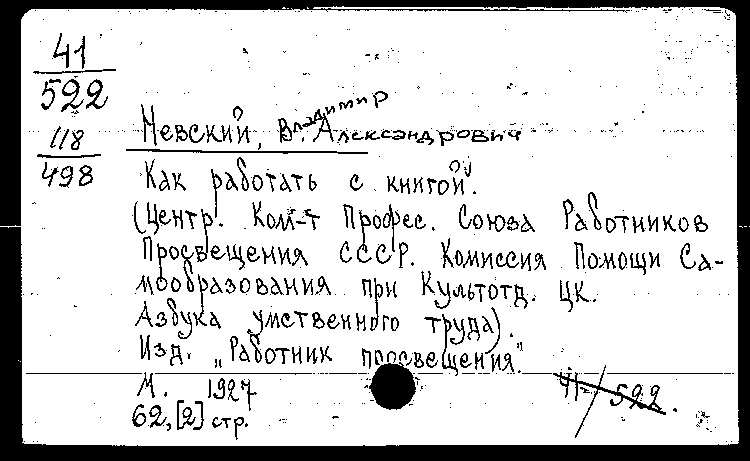 41
522
118
498
Невский, Владимир Александрович
Как работать с книгой.
(Центр. Ком-т Профес. Союза Работников
Просвещения СССР. Комиссия Помощи Са-
мообразования при Культотд. ЦК.
Азбука умственного труда).
Изд. „Работник просвещения".
М. 1927
62,[2] стр.
41/522.